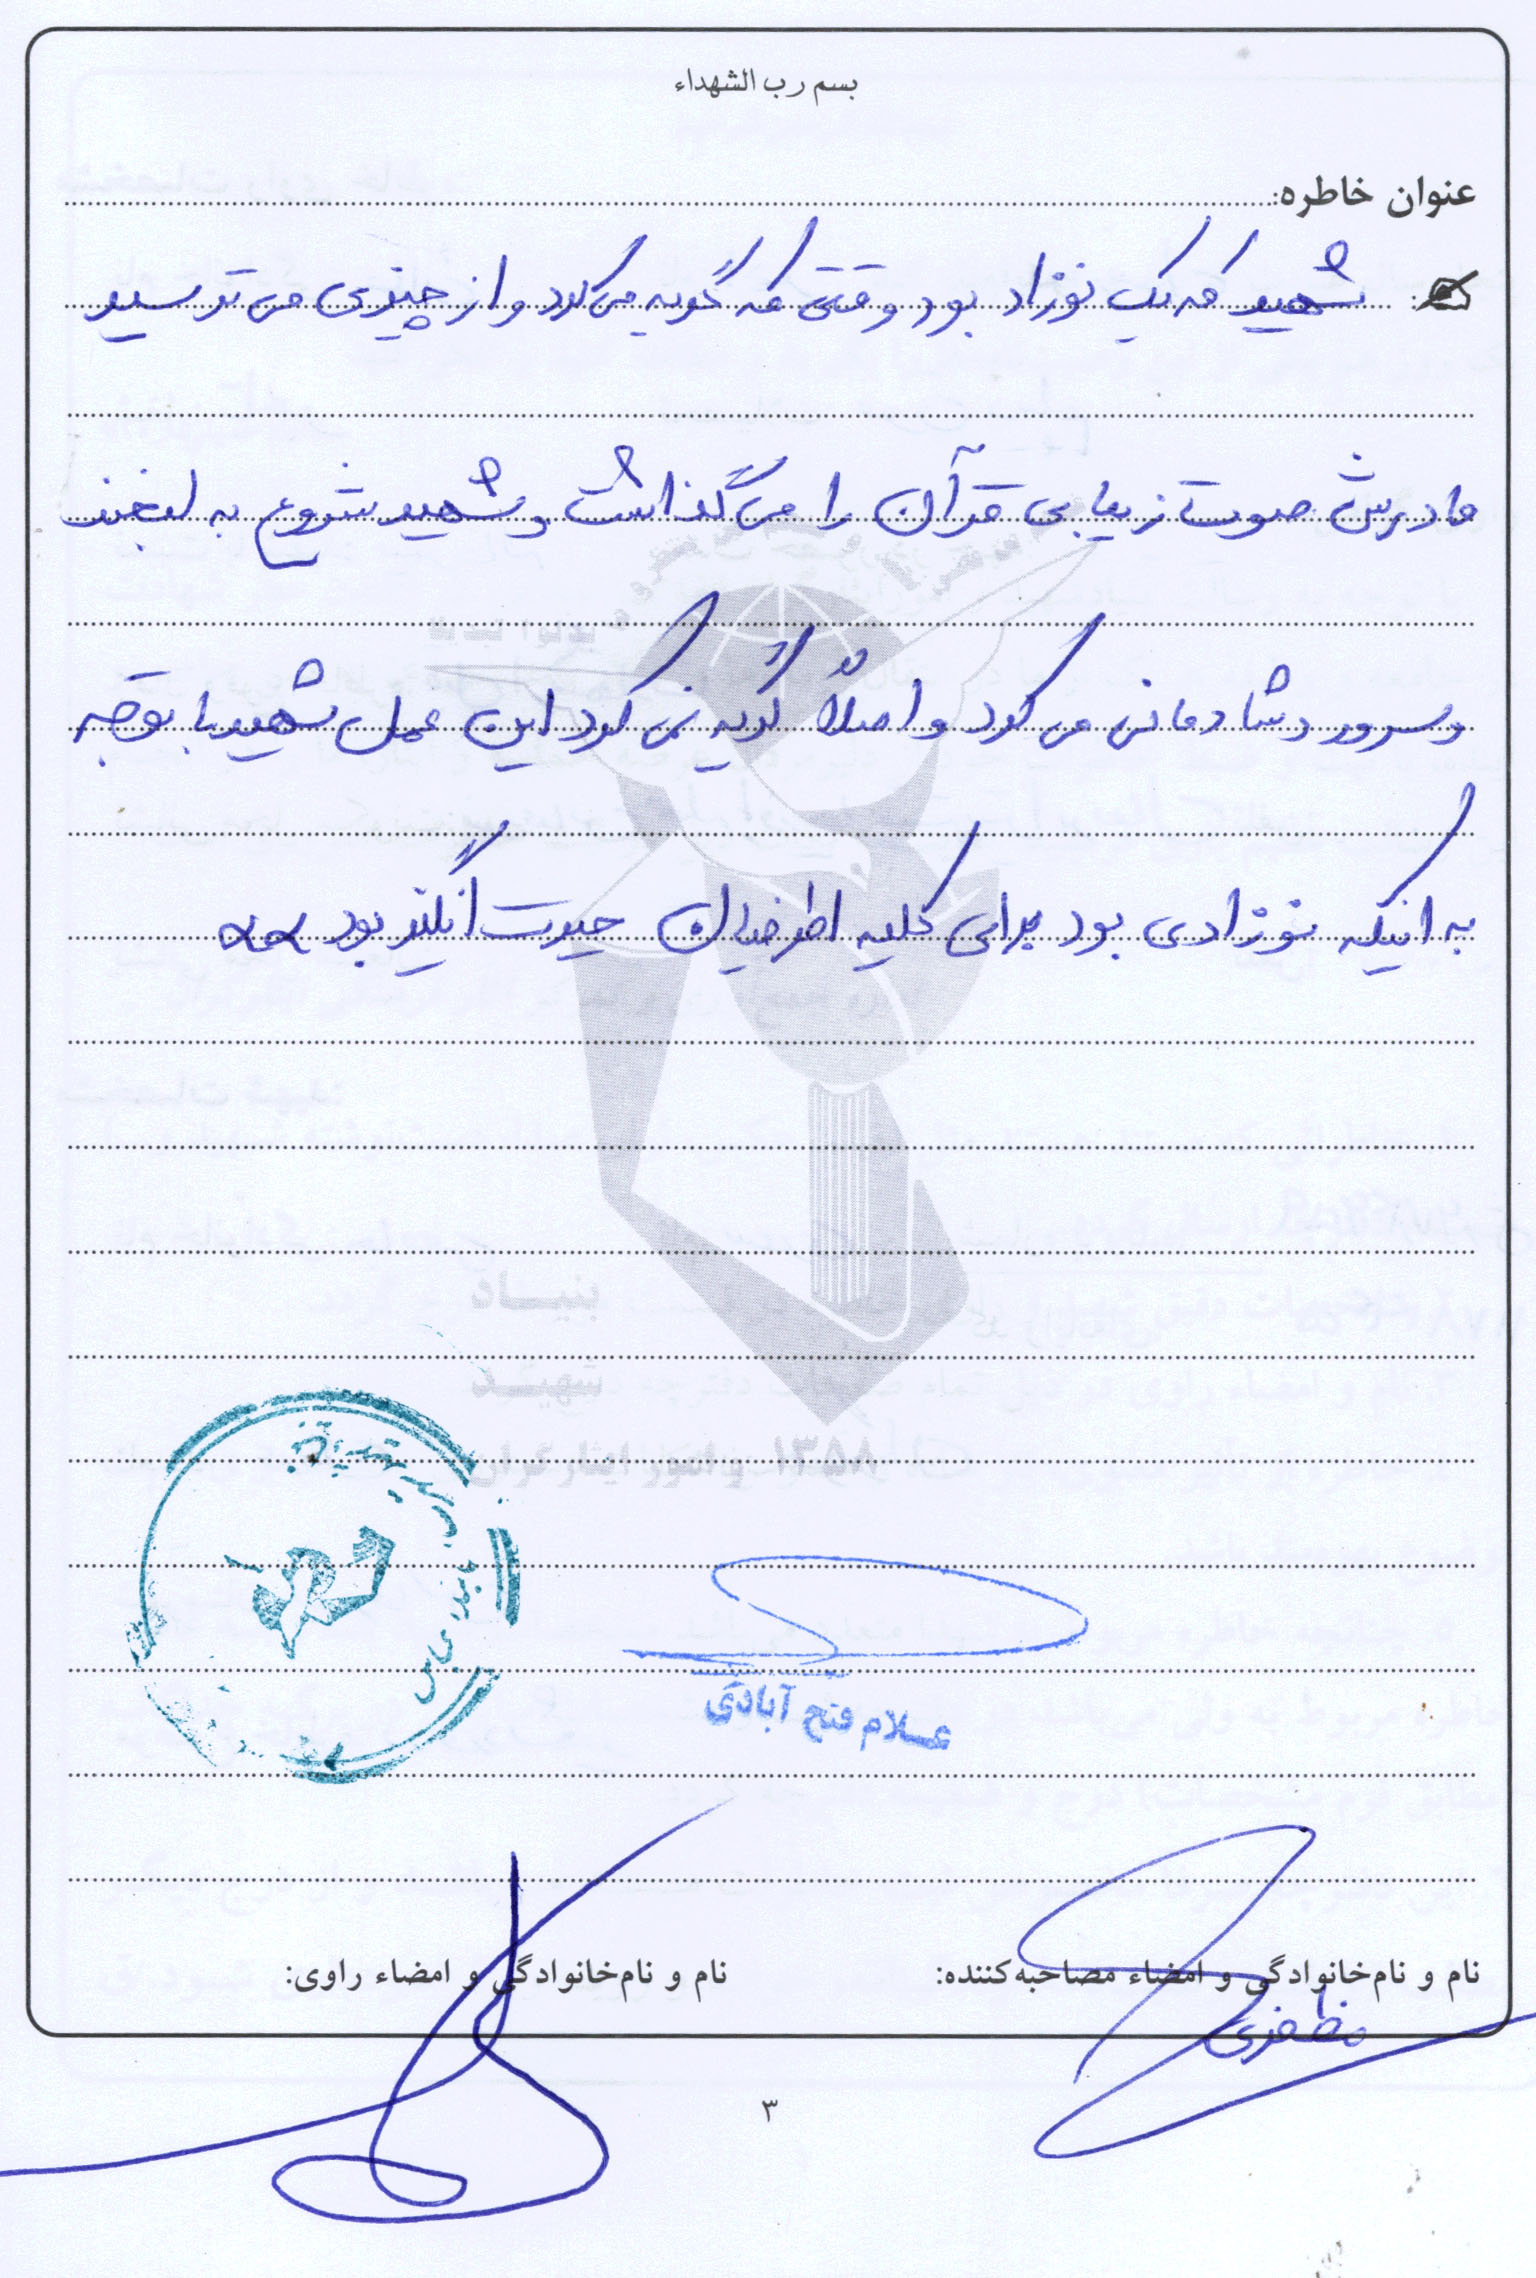 بسم رب الشهداء
عنوان خاطره:
شهید که یک نوزاد بود وقتی که گریه می کرد و از چیزی می ترسید
مادرش صوت زیبایی قرآن را می گذاشت و شهید شروع به لبخند
و سرور و شادمانی می کرد و اصلاً گریه نمی کرد این عمل شهید با توجه
به اینکه نوزادی بود برای کلیه اطرافیان حیرت انگیز بود
بنیاد
شهید
۱۳۵۸ و امور ایثارگران
غلام فتح آبادی
نام و نام‌خانوادگی و امضاء مصاحبه‌کننده: نام و نام‌خانوادگی و امضاء راوی:
مظفری
۳